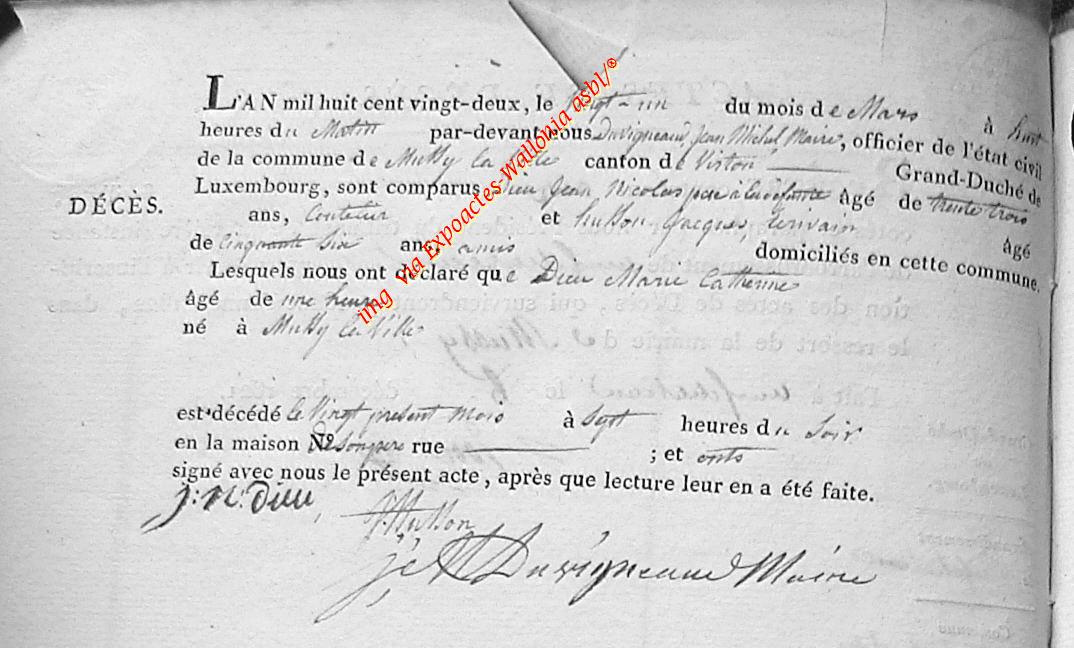 L'AN mil huit cent vingt-deux, le vingt-un du mois de Mars à huit
heures du Matin par-devant nous Duvigneaud, Jean Michel Maire, officier de l'état civil
de la commune de Mussy la Ville canton de Virton Grand-Duché de
Luxembourg, sont comparus Dieu Jean Nicolas pere à la défunte âgé de trente trois
DÉCÈS.
ans, et husson Jacques, Ecrivain âgé
de Cinquante Six ans, amis domiciliés en cette commune.
Lesquels nous ont déclaré que Dieu Marie Catherine
âgé de une heure
né à Mussy la Ville
est décédé le Vingt present mois à Sept heures du Soir
en la maison de son pere rue ; et onts
signé avec nous le présent acte, après que lecture leur en a été faite.
J: N: Dieu
J Husson
Duvigneaud Maire
img via Expoactes-Wallonia asbl/®